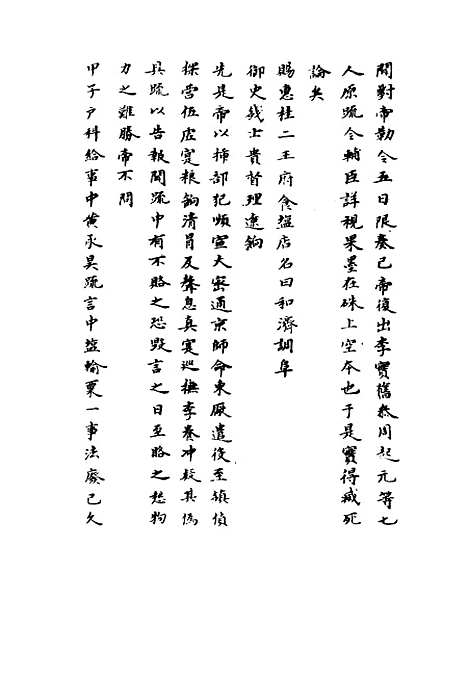 問對帝勒令五日限奏已帝復出李實舊叅周起元等七
人原疏令輔臣詳視果墨在硃上空本也于是實得減死
論矣
賜惠桂二王府食鹽店名曰和濟訓阜
御史錢士貴督理遼餉
先是帝以揷部犯順宣大密通京師命東厰遣役至鎮偵
探營伍虚實粮餉清冐及聲息真實巡撫李養冲疑其偽
具疏以告報聞疏中有不賂之恐毀言之日至賂之愁物
力之難勝帝不問
甲子户科給事中黄承昊疏言中鹽輸粟一事法廢已久